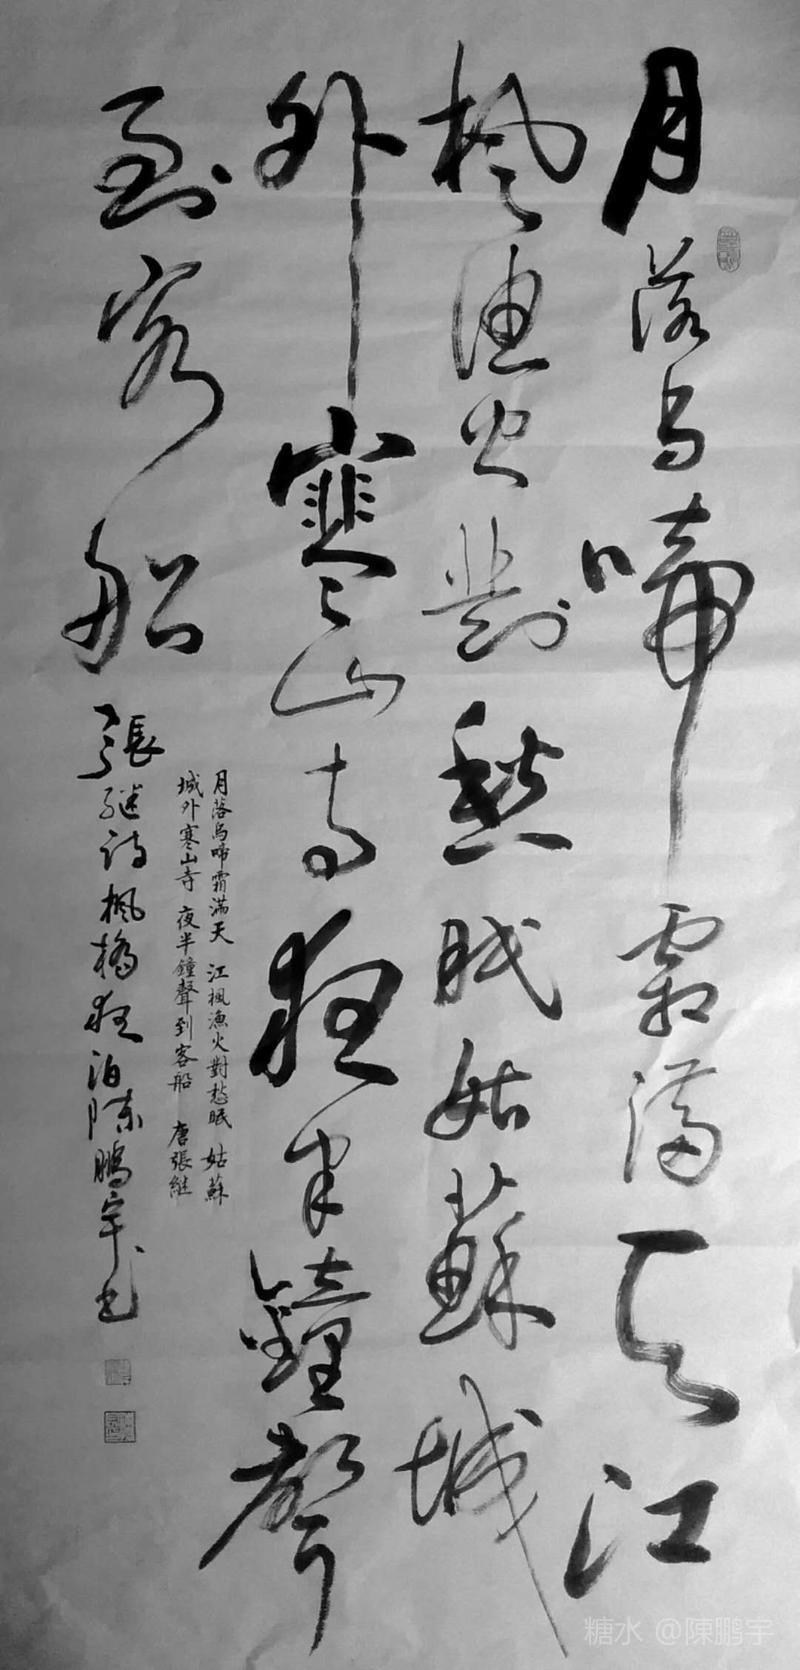 月落烏啼霜滿天江
楓漁火對愁眠姑蘇城
外寒山寺夜半鐘聲
到客船
月落烏啼霜滿天 江楓漁火對愁眠 姑蘇
城外寒山寺 夜半鐘聲到客船 唐張継
張継詩楓橋夜泊陳鵬宇書
糖水 @陳鹏宇